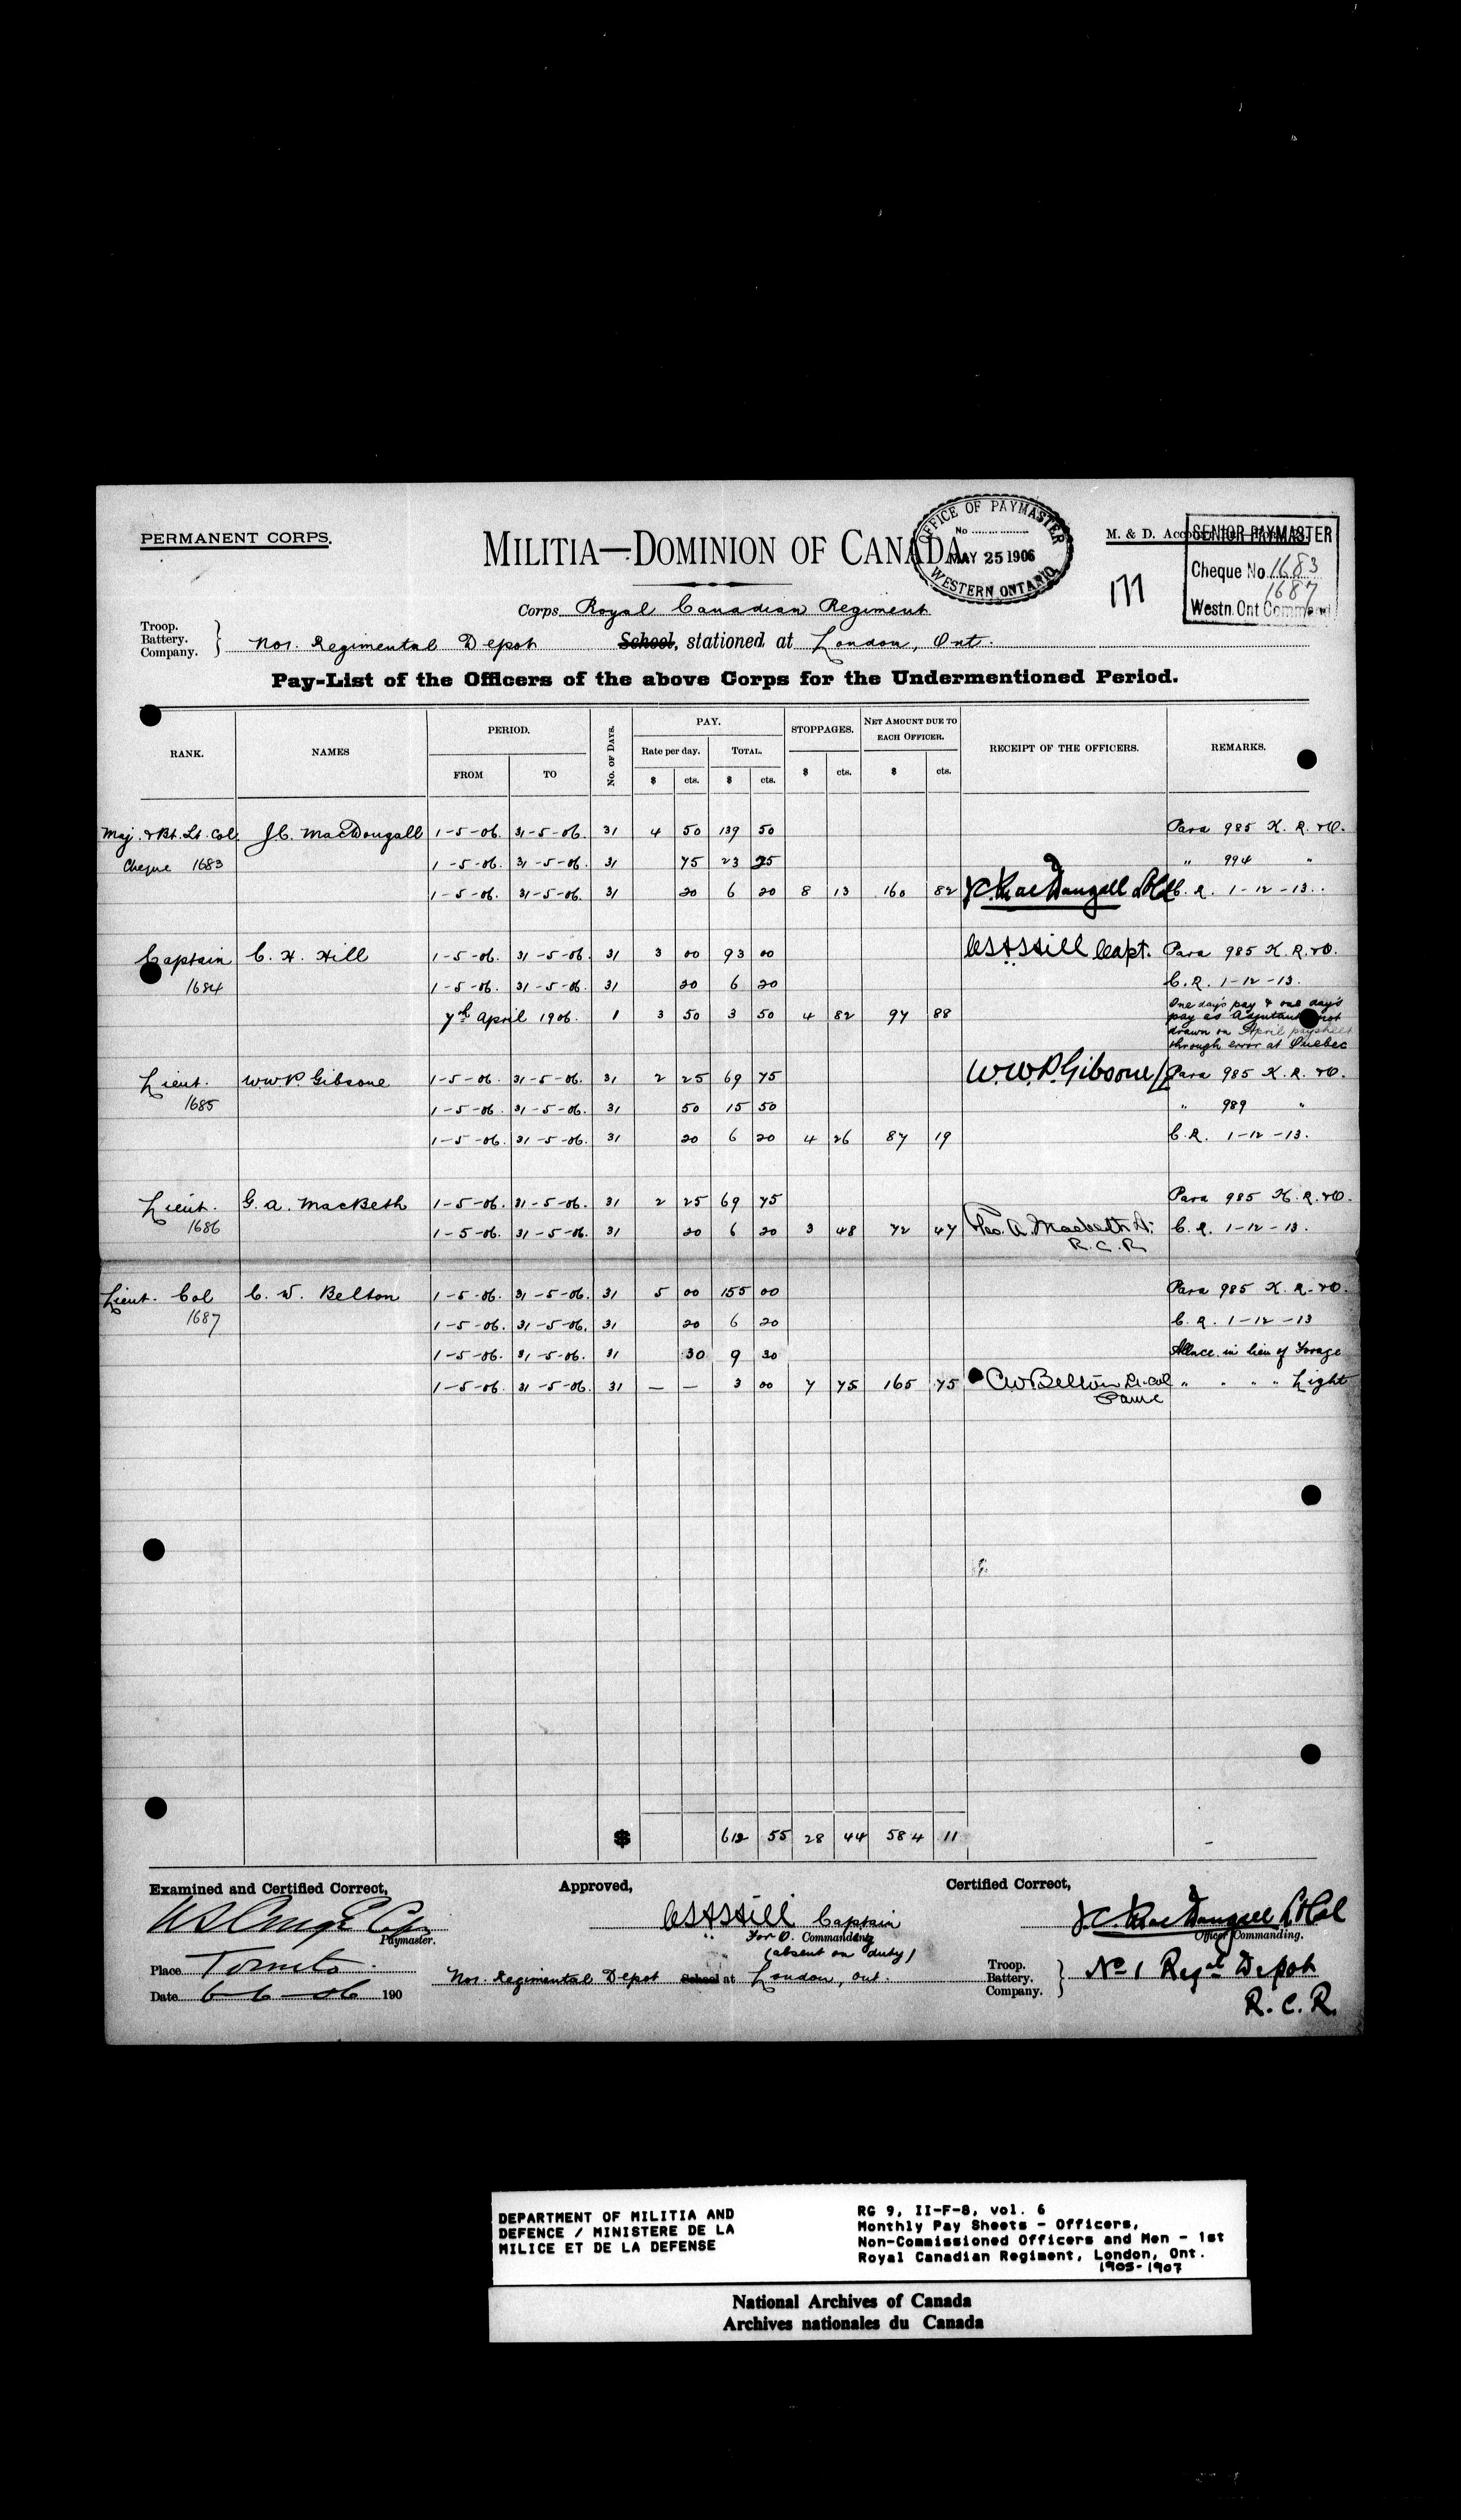 PERMANENT CORPS.
MILITIA—DOMINION OF CANADA
OFFICE OF PAYMASTER
No
MAY 25 1906
WESTERN ONTARIO
M. & D. Acco
SENIOR PAYMASTER
Cheque No. 1683
1687
Westn. Ont Command
177
Corps Royal Canadian Regiment
Troop.
Battery.
Company.
No1. Regimental Depot School, stationed at London, Ont.
Pay-List of the Officers of the above Corps for the Undermentioned Period.
RANK. NAMES PERIOD. No. OF DAYS. PAY. STOPPAGES. NET AMOUNT DUE TO EACH OFFICER. RECEIPT OF THE OFFICERS. REMARKS.
FROM TO Rate per day. TOTAL.
$ cts. $ cts. $ cts. $ cts.
Maj. & Bt. Lt. Col J.C. MacDougall 1-5-06. 31-5-06. 31 4 50 139 50 Para 985 K. R. &O.
Cheque 1683 1-5-06. 31-5-06. 31 75 23 25 " 994 "
1-5-06. 31-5-06. 31 20 6 20 8 13 160 82 J.C. MacDougall Lt Col C. R. 1-12-13.
Captain C. H. Hill 1-5-06. 31-5-06. 31 3 00 93 00 C.H. Hill Capt. Para 985 K. R. &O.
1684 1-5-06. 31-5-06. 31 20 6 20 C. R. 1-12-13.
7th April 1906. 1 3 50 3 50 4 82 97 88 One day's pay & one day's
pay as Adjutant not
drawn on April paysheet
through error at Quebec
Lieut. W.W.P. Gibsone 1-5-06. 31-5-06. 31 2 25 69 75 W.W.P. Gibsone Lt Para 985 K. R. &O.
1685 1-5-06. 31-5-06. 31 50 15 50 " 989 "
1-5-06. 31-5-06. 31 20 6 20 4 26 87 19 C. R. 1-12-13.
Lieut. G. A. MacBeth 1-5-06. 31-5-06. 31 2 25 69 75 Para 985 K. R. &O.
1686 1-5-06. 31-5-06. 31 20 6 20 3 48 72 47 Geo. A. Macbeth Lt. C. R. 1-12-13.
R. C. R
Lieut. Col C. W. Belton 1-5-06. 31-5-06. 31 5 00 155 00 Para 985 K. R. &O.
1687 1-5-06. 31-5-06. 31 20 6 20 C. R. 1-12-13
1-5-06. 31-5-06. 31 30 9 30 Allnce. in lieu of Forage
1-5-06. 31-5-06. 31 — — 3 00 7 75 165 75 CW Belton Lt-Col " " " " Light
$ 612 55 28 44 584 11
Examined and Certified Correct, Approved, Certified Correct,
C.H. Hill Captain J.C. MacDougall Lt Col
Paymaster. For O. Commanding Officer Commanding.
(absent on duty)
Place Toronto. No1. Regimental Depot School at London, Ont. Troop.
Battery.
Company.
No 1 Regtl Depot
Date 6-6-06 190
R. C. R.
DEPARTMENT OF MILITIA AND
DEFENCE / MINISTERE DE LA
MILICE ET DE LA DEFENSE
RG 9, II-F-8, vol. 6
Monthly Pay Sheets - Officers,
Non-Commissioned Officers and Men - 1st
Royal Canadian Regiment, London, Ont.
1905-1907
National Archives of Canada
Archives nationales du Canada